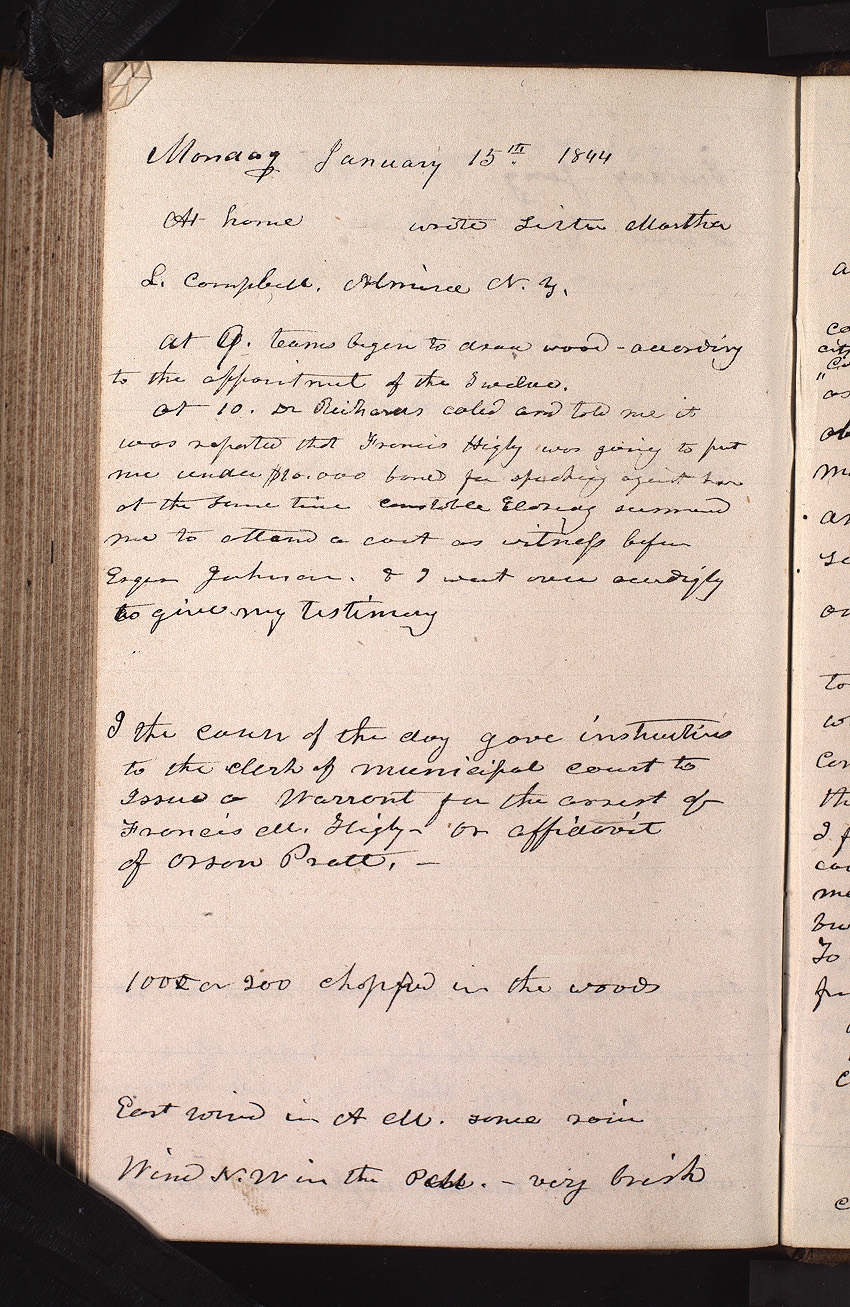 Monday January 15th. 1844
At home wrote Sister Martha
L. Campbell. Elmira N. Y.
at 9. teams began to draw wood - according
to the appointment of the Twelve.
at 10. Dr Richards caled and told me it
was reported that Francis Higby was going to put
me under $10.000 bond for speaking against him
at the same time constable summoned
me to attend a court as witness before
Esqr Johnson. & I went over accordigly
to give my testimony
I the course of the day gave instructions
to the clerk of municipal court to
Issue a Warrant for the arrest of
Francis M. Higby - or affidavit
of Orson Pratt. -
100 or 200 chopped in the woods
East wind in A M. some rain
Wind N. W in the P M. - very brisk
a
co
as
ob
me
an
to
w
con
th
I f
me
To